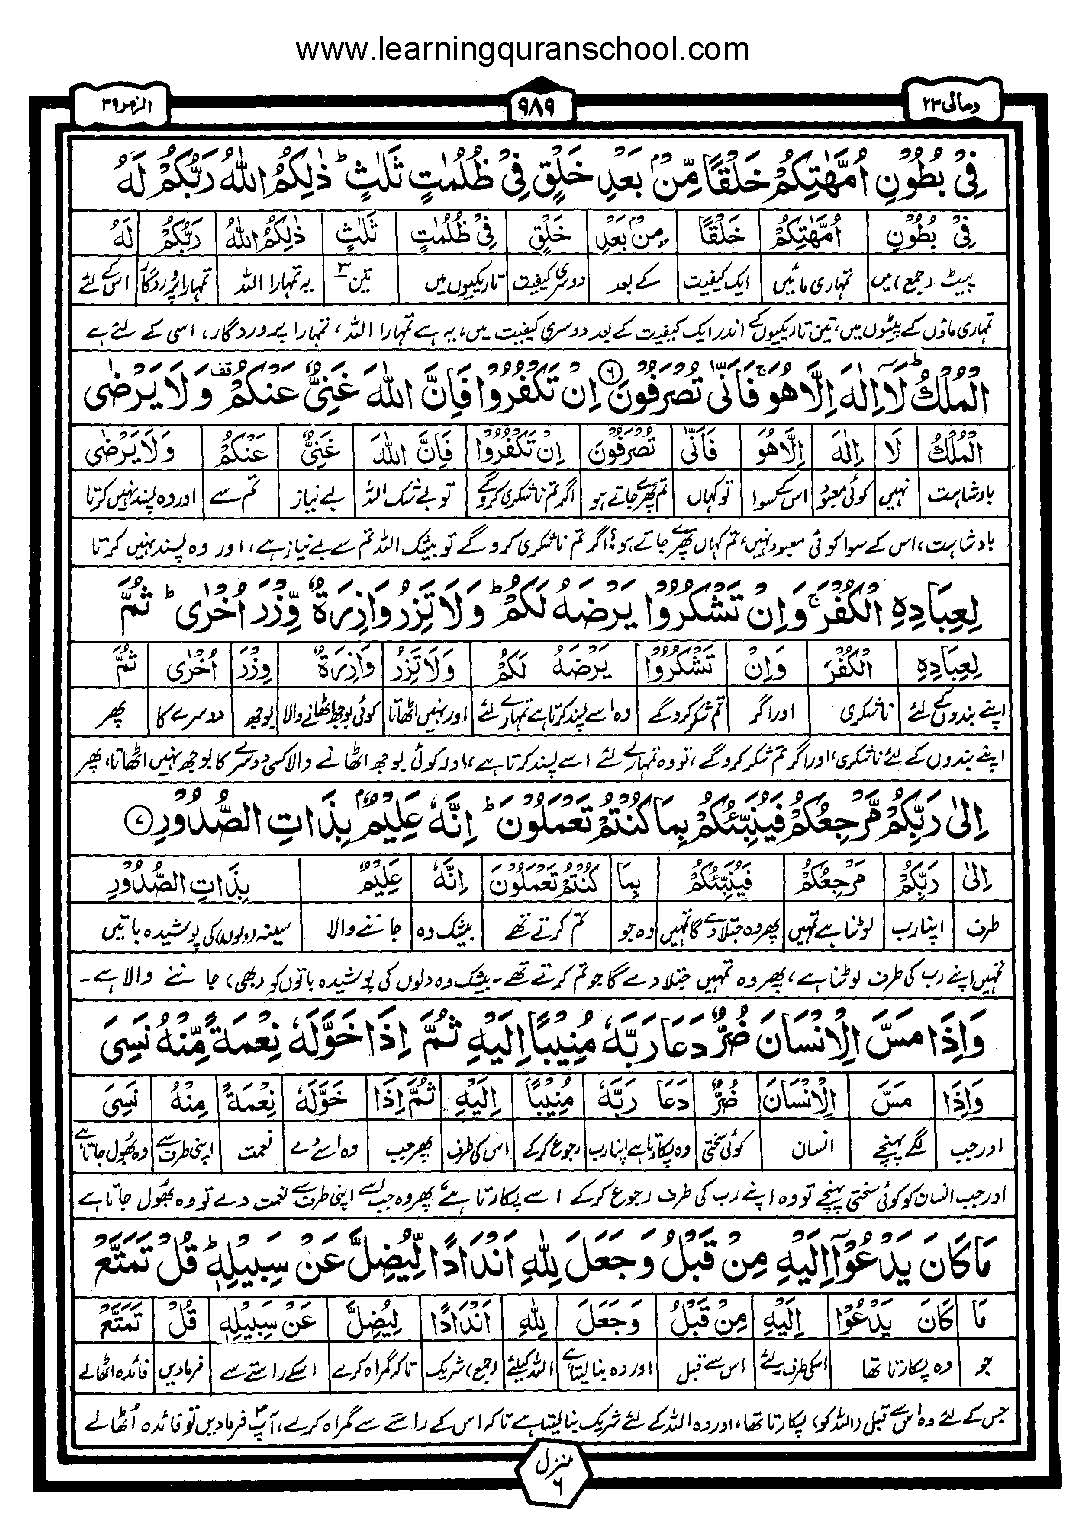 www.learningquranschool.com
الزمر ٣٩
٩٨٩
ومالی ٢٣
فِیْ بُطُوْنِ اُمَّهٰتِكُمْ خَلْقًا مِّنْۢ بَعْدِ خَلْقٍ فِیْ ظُلُمٰتٍ ثَلٰثٍ ؕ ذٰلِكُمُ اللّٰهُ رَبُّكُمْ لَهُ
فِیْ بُطُوْنِ اُمَّهٰتِكُمْ خَلْقًا مِنْ بَعْدِ خَلْقٍ فِیْ ظُلُمٰتٍ ثَلٰثٍ ذٰلِكُمُ اللّٰهُ رَبُّكُمْ لَهُ
پیٹ (جمع) میں تمہاری مائیں ایک کیفیت کے بعد دوسری کیفیت تاریکیوں میں تین ٣ یہ تمہارا اللہ تمہارا پروردگار اس کے لئے
تمہاری ماؤں کے پیٹوں میں، تین تاریکیوں کے اندر ایک کیفیت کے بعد دوسری کیفیت میں، یہ ہے تمہارا اللہ، تمہارا پروردگار، اسی کے لئے ہے
الْمُلْكُ ؕ لَاۤ اِلٰهَ اِلَّا هُوَ ۚ فَاَنّٰی تُصْرَفُوْنَ ۶ اِنْ تَكْفُرُوْا فَاِنَّ اللّٰهَ غَنِیٌّ عَنْكُمْ ۫ وَلَا یَرْضٰی
الْمُلْكُ لَا اِلٰهَ اِلَّا هُوَ فَاَنّٰی تُصْرَفُوْنَ اِنْ تَكْفُرُوْا فَاِنَّ اللّٰهَ غَنِیٌّ عَنْكُمْ وَلَا یَرْضٰی
بادشاہت نہیں کوئی معبود اس کے سوا تو کہاں تم پھرے جاتے ہو اگر تم ناشکری کرو گے تو بے شک اللہ بے نیاز تم سے اور وہ پسند نہیں کرتا
بادشاہت، اس کے سوا کوئی معبود نہیں، تم کہاں پھرے جاتے ہو؟ اگر تم ناشکری کرو گے تو بیشک اللہ تم سے بے نیاز ہے، اور وہ پسند نہیں کرتا
لِعِبَادِهِ الْكُفْرَ ۚ وَاِنْ تَشْكُرُوْا یَرْضَهُ لَكُمْ ؕ وَلَا تَزِرُ وَازِرَةٌ وِّزْرَ اُخْرٰی ؕ ثُمَّ
لِعِبَادِهِ الْكُفْرَ وَاِنْ تَشْكُرُوْا یَرْضَهُ لَكُمْ وَلَا تَزِرُ وَازِرَةٌ وِزْرَ اُخْرٰی ثُمَّ
اپنے بندوں کے لئے ناشکری اور اگر تم شکر کرو گے وہ اسے پسند کرتا ہے تمہارے لئے اور نہیں اٹھاتا کوئی بوجھ اٹھانے والا بوجھ دوسرے کا پھر
اپنے بندوں کے لئے ناشکری، اور اگر تم شکر کرو گے، تو وہ تمہارے لئے اسے پسند کرتا ہے، اور کوئی بوجھ اٹھانے والا کسی دوسرے کا بوجھ نہیں اٹھاتا، پھر
اِلٰی رَبِّكُمْ مَّرْجِعُكُمْ فَیُنَبِّئُكُمْ بِمَا كُنْتُمْ تَعْمَلُوْنَ ؕ اِنَّهٗ عَلِیْمٌۢ بِذَاتِ الصُّدُوْرِ ۷
اِلٰی رَبِّكُمْ مَرْجِعُكُمْ فَیُنَبِّئُكُمْ بِمَا كُنْتُمْ تَعْمَلُوْنَ اِنَّهٗ عَلِیْمٌ بِذَاتِ الصُّدُوْرِ
طرف اپنا رب لوٹنا ہے تمہیں پھر وہ جتلا دے گا تمہیں وہ جو تم کرتے تھے بیشک وہ جاننے والا سینہ (دلوں) کی پوشیدہ باتیں
تمہیں اپنے رب کی طرف لوٹنا ہے، پھر وہ تمہیں جتلا دے گا جو تم کرتے تھے۔ بیشک وہ دلوں کی پوشیدہ باتوں کو (بھی) جاننے والا ہے۔
وَاِذَا مَسَّ الْاِنْسَانَ ضُرٌّ دَعَا رَبَّهٗ مُنِیْبًا اِلَیْهِ ثُمَّ اِذَا خَوَّلَهٗ نِعْمَةً مِّنْهُ نَسِیَ
وَاِذَا مَسَّ الْاِنْسَانَ ضُرٌّ دَعَا رَبَّهٗ مُنِیْبًا اِلَیْهِ ثُمَّ اِذَا خَوَّلَهٗ نِعْمَةً مِنْهُ نَسِیَ
اور جب لگے پہنچے انسان کوئی سختی وہ پکارتا ہے اپنا رب رجوع کرکے اس کی طرف پھر جب وہ اسے دے نعمت اپنی طرف سے وہ بھول جاتا ہے
اور جب انسان کو کوئی سختی پہنچے تو وہ اپنے رب کی طرف رجوع کرکے اسے پکارتا ہے، پھر وہ جب اسے اپنی طرف سے نعمت دے تو وہ بھول جاتا ہے
مَا كَانَ یَدْعُوْۤا اِلَیْهِ مِنْ قَبْلُ وَجَعَلَ لِلّٰهِ اَنْدَادًا لِّیُضِلَّ عَنْ سَبِیْلِهٖ ؕ قُلْ تَمَتَّعْ
مَا كَانَ یَدْعُوْا اِلَیْهِ مِنْ قَبْلُ وَجَعَلَ لِلّٰهِ اَنْدَادًا لِیُضِلَّ عَنْ سَبِیْلِهٖ قُلْ تَمَتَّعْ
جو وہ پکارتا تھا اسکی طرف لئے اس سے قبل اور وہ بنا لیتا ہے اللہ کیلئے (جمع) شریک تاکہ گمراہ کرے اسکے راستے سے فرمادیں فائدہ اٹھالے
جس کے لئے وہ اس سے قبل (اللہ کو) پکارتا تھا، اور وہ اللہ کے لئے شریک بنالیتا ہے تاکہ اس کے راستے سے گمراہ کرے، آپؐ فرمادیں تو فائدہ اُٹھالے
منزل ۶